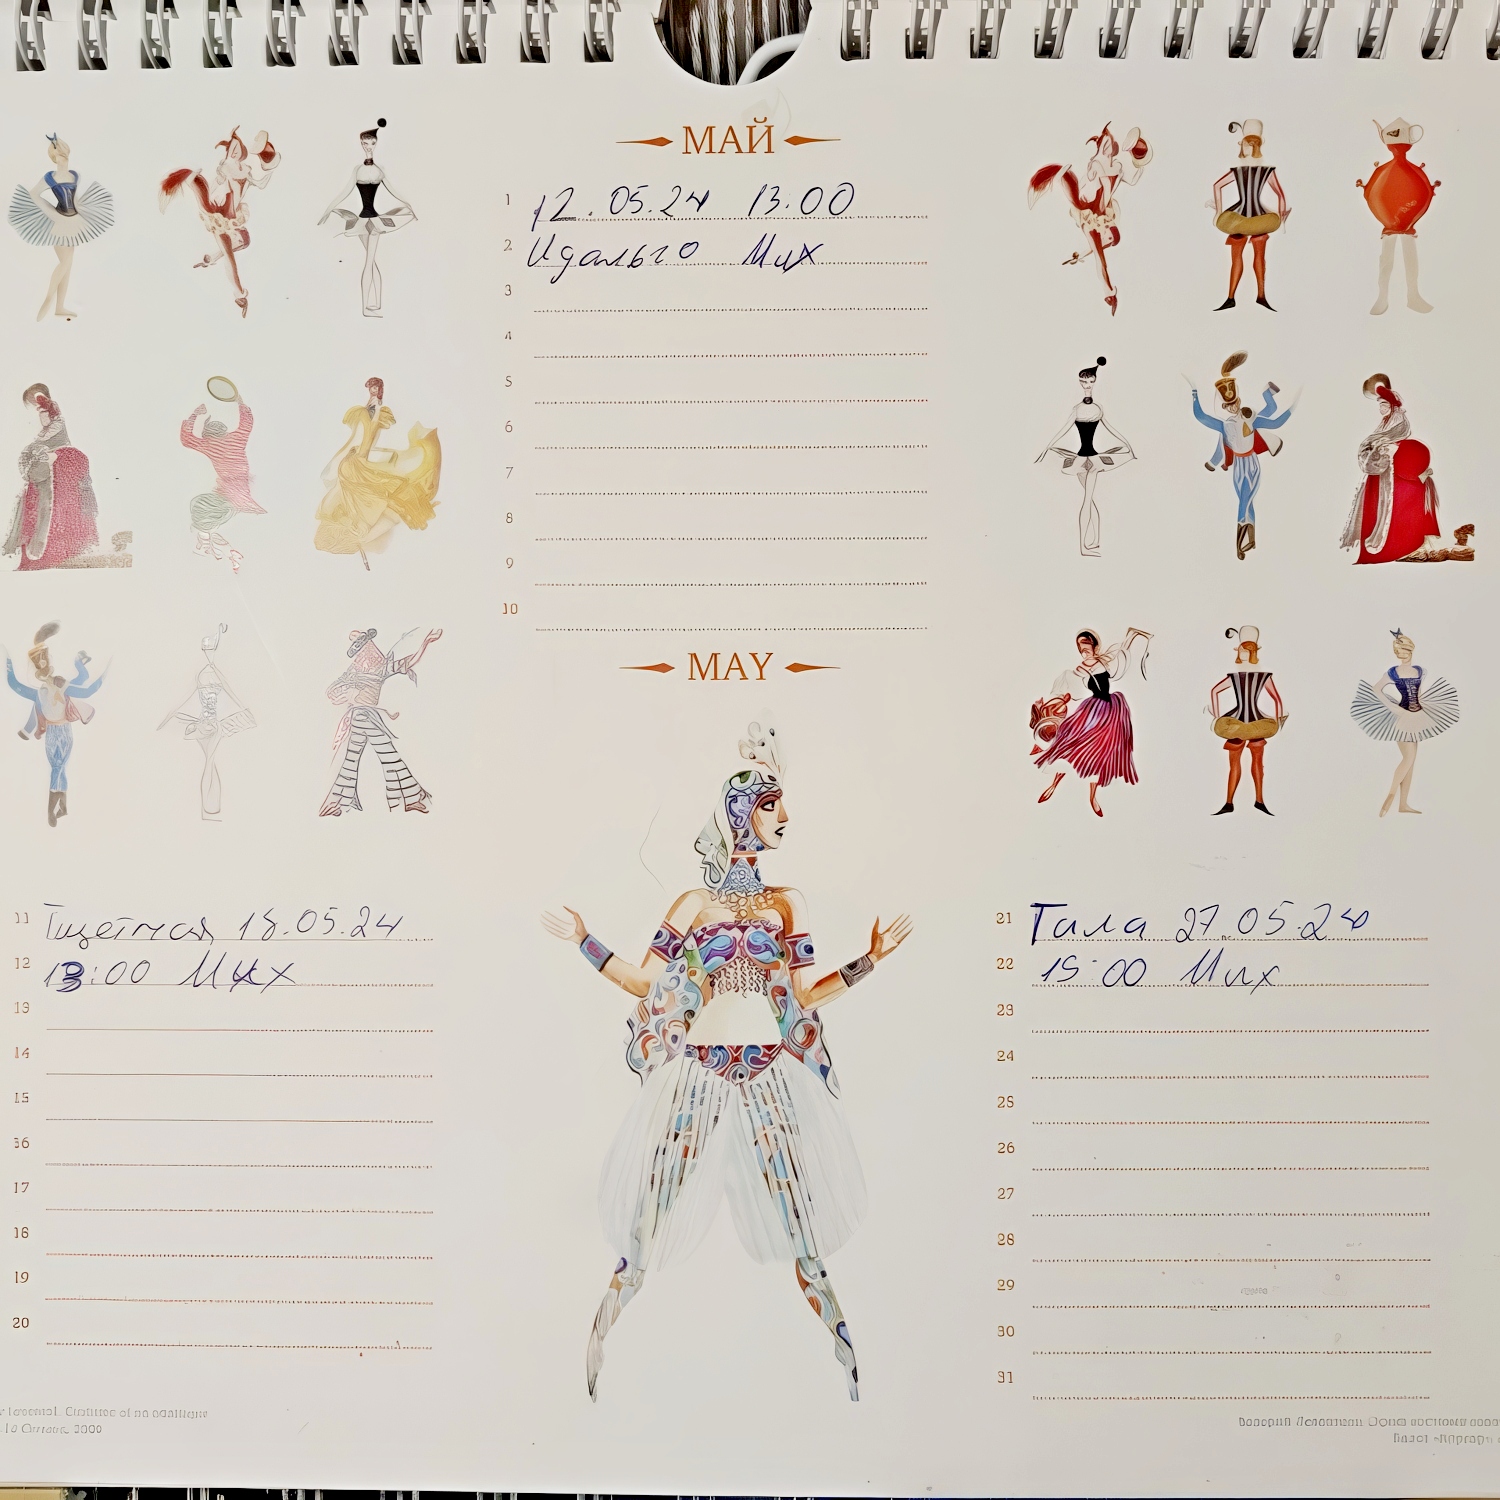 МАЙ
1 12.05.24 13:00
2 Идальго Мих
3
4
5
6
7
8
9
10
MAY
11 Тщетная 18.05.24
12 13:00 Мих
13
14
15
16
17
18
19
20
21 Гала 27.05.24
22 15:00 Мих
23
24
25
26
27
28
29
30
31
2000
Валерий